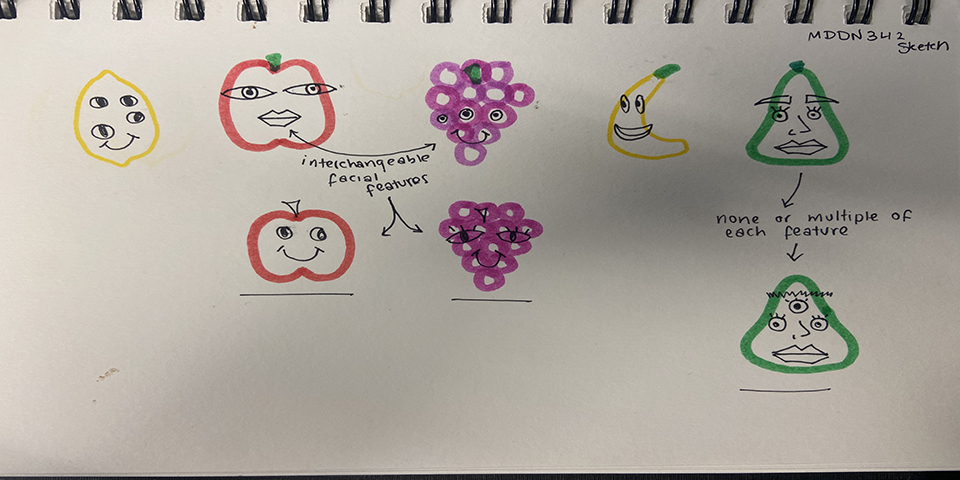 MDDN342
Sketch
interchangeable
facial
features
none or multiple of
each feature